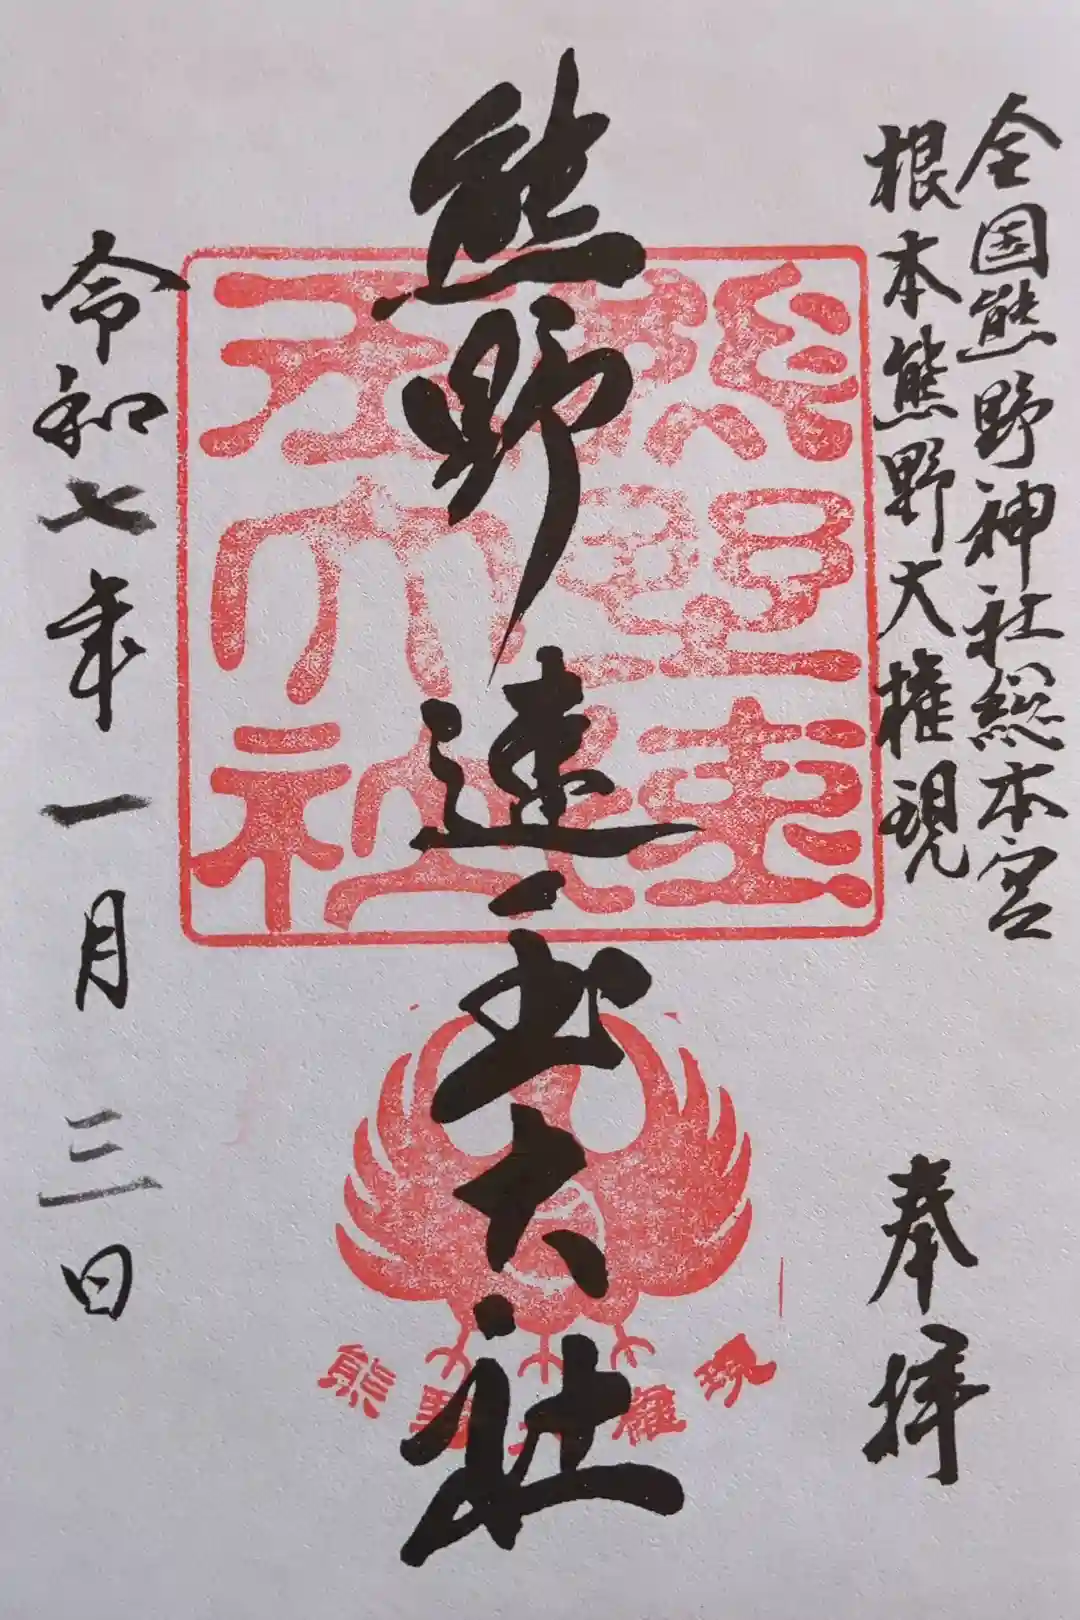 全国熊野神社総本宮
根本熊野大権現
奉拝
熊野速玉大社
令和七年一月三日
熊野速玉大社
熊野大權現